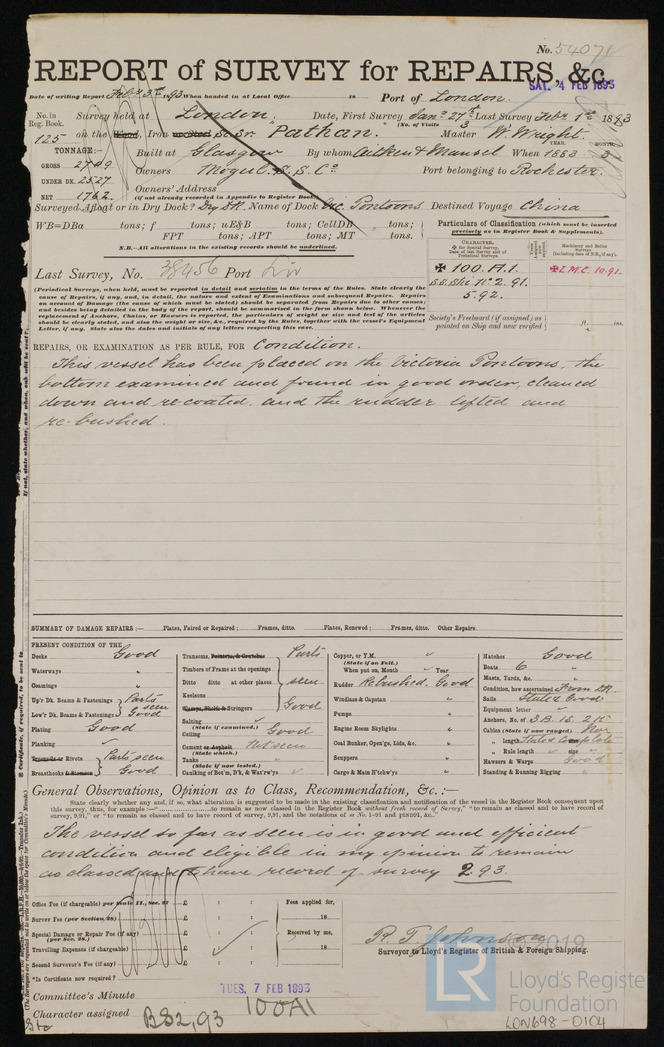 No. 54071
REPORT of SURVEY for REPAIRS, &c.
SAT. 4 FEB 1893
Date of writing Report Feb 3rd 1893 When handed in at Local Office 18 Port of London.
No. in Reg. Book. Survey held at London, Date, First Survey Jany 27th Last Survey Feby 1st 1893
(No. of Visits 3)
125 on the Wood, Iron or Steel Sc. Sr. "Pathan." Master W. Wright.
TONNAGE:— Built at Glasgow By whom Aitken & Mansel When 1883 YEAR. MONTH.
GROSS 2709
Owners Mogul S. S. Co Port belonging to Rochester.
UNDER DK. 2527
Owners' Address
NET 1762
(if not already recorded in Appendix to Register Book.)
Surveyed Afloat or in Dry Dock? Dry Dk. Name of Dock Vic. Pontoons Destined Voyage China
WB=DBa tons; f tons; uE&B tons; CellDB tons;
FPT tons; APT tons; MT tons.
N.B.—All alterations in the existing records should be underlined.
Particulars of Classification (which must be inserted precisely as in Register Book & Supplements).
CHARACTER.
for Special Survey.
Date of last Survey and of Periodical Surveys.
Machinery and Boiler Surveys
(including date of N.B., if any).
✠ 100.A.1.
✠ L.M.C. 10.91.
S.S. Shi No 2. 91.
5.92.
Last Survey, No. 38456 Port Liv
(Periodical Surveys, when held, must be reported in detail and seriatim in the terms of the Rules. State clearly the
cause of Repairs, if any, and, in detail, the nature and extent of Examinations and subsequent Repairs. Repairs
on account of Damage (the cause of which must be stated) should be separated from Repairs due to other causes;
and besides being detailed in the body of the report, should be summarized in the form shown below. Whenever the
replacement of Anchors, Chains, or Hawsers is reported, the particulars of weight or size and test of the articles
should be clearly stated, and also the weight or size, &c., required by the Rules, together with the vessel's Equipment
Letter, if any. State also the dates and initials of any letters respecting this case.
Society's Freeboard (if assigned) as painted on Ship and now verified ft. ins.
REPAIRS, OR EXAMINATION AS PER RULE, FOR Condition.
This vessel has been placed on the Victoria Pontoons, the
bottom examined and found in good order, cleaned
down and re-coated, and the rudder lifted and
re-bushed.
SUMMARY OF DAMAGE REPAIRS:— Plates, Faired or Repaired; Frames, ditto. Plates, Renewed; Frames, ditto. Other Repairs.
PRESENT CONDITION OF THE
Decks Good
Waterways "
Coamings "
Up'r Dk. Beams & Fastenings Parts seen
Low'r Dk. Beams & Fastenings Good
Plating Good
Planking ✓
Treenails or Rivets Parts seen
Breasthooks & Riemen Good
Transoms, Pointers, & Crutches Parts
Timbers of Frame at the openings
Ditto ditto at other places seen
Keelsons
Clamps, Shelfs & Stringers Good
Salting ✓
(State if examined.)
Ceiling Good
Cement or Asphalt Not seen
(State which.)
Tanks "
(State if now tested.)
Caulking of Bot'm, D'k, & Wat'rw'ys ✓
Copper, or Y.M. "
(State if on Felt.)
When put on, Month " Year
Rudder Rebushed. Good
Windlass & Capstan "
Pumps "
Engine Room Skylights "
Coal Bunker, Open'gs, Lids, &c. "
Scuppers "
Cargo & Main H'tchw'ys "
Hatches Good
Boats 6 "
Masts, Yards, &c. "
Condition, how ascertained From Dk.
Sails Stated Good
Equipment letter
Anchors, No. of 3B. 1S. 2K
Cables (State if now ranged) Non
" length Stated Complete
" Rule length size
Hawsers & Warps Good
Standing & Running Rigging "
General Observations, Opinion as to Class, Recommendation, &c.:—
State clearly whether any and, if so, what alteration is suggested to be made in the existing classification and notification of the vessel in the Register Book consequent upon
this survey, thus, for example:— to remain as now classed in the Register Book without fresh record of Survey," "to remain as classed and to have record of
survey, 9,91," or "to remain as classed and have record of survey, 9,91, and the notations of
The vessel so far as seen is in good and efficient
condition and eligible in my opinion to remain
as classed and to have record of survey 2.93.
Office Fee (if chargeable) per Scale II., Sec. 27 £ : :
Survey Fee (per Section 28) £ : :
Special Damage or Repair Fee (if any) £ : :
(per Sec. 28.)
Travelling Expenses (if chargeable) £ : :
Second Surveyor's Fee (if any) £ : :
*Is Certificate now required?
Fees applied for,
18
Received by me,
18
R. T. Johnson
Surveyor to Lloyd's Register of British & Foreign Shipping.
TUES. 7 FEB 1893
Committee's Minute
100A1
Character assigned BS2,93
© 2019
LR
Lloyd's Register
Foundation
LON698-0104